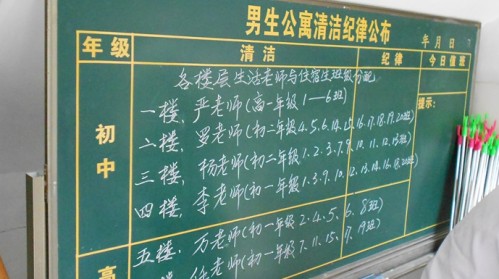 男生公寓清洁纪律公布
年 月 日
年级 清洁 纪律 今日值班
各楼层生活老师与住宿生班级分配
提示：
初中
一楼、严老师(高一年级1—6班)
二楼、罗老师(初二年级4.5.6.10.15.16.17.18.19.20班)
三楼、杨老师(初二年级1.2.3.7.9.10.11.12.13班)
四楼、李老师(初一年级1.3.9.10.12.13.14.16.18.20班)
高
五楼、万老师(初一年级2.4.5.6.8班)
老师(初一年级7.11.15.17.19班)